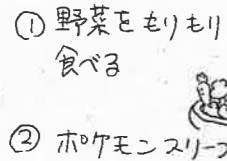 ① 野菜をもりもり
食べる
② ポケモンスリープ